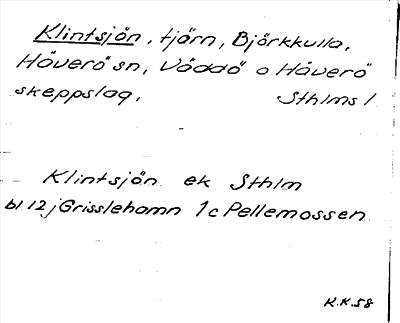 Klintsjön, tjärn, Björkkulla,
Häverö sn, Väddö o Häverö
skeppslag, Sthlms l
Klintsjön ek Sthlm
bl. 12 j Grisslehamn 1c Pellemossen
K.K. 58